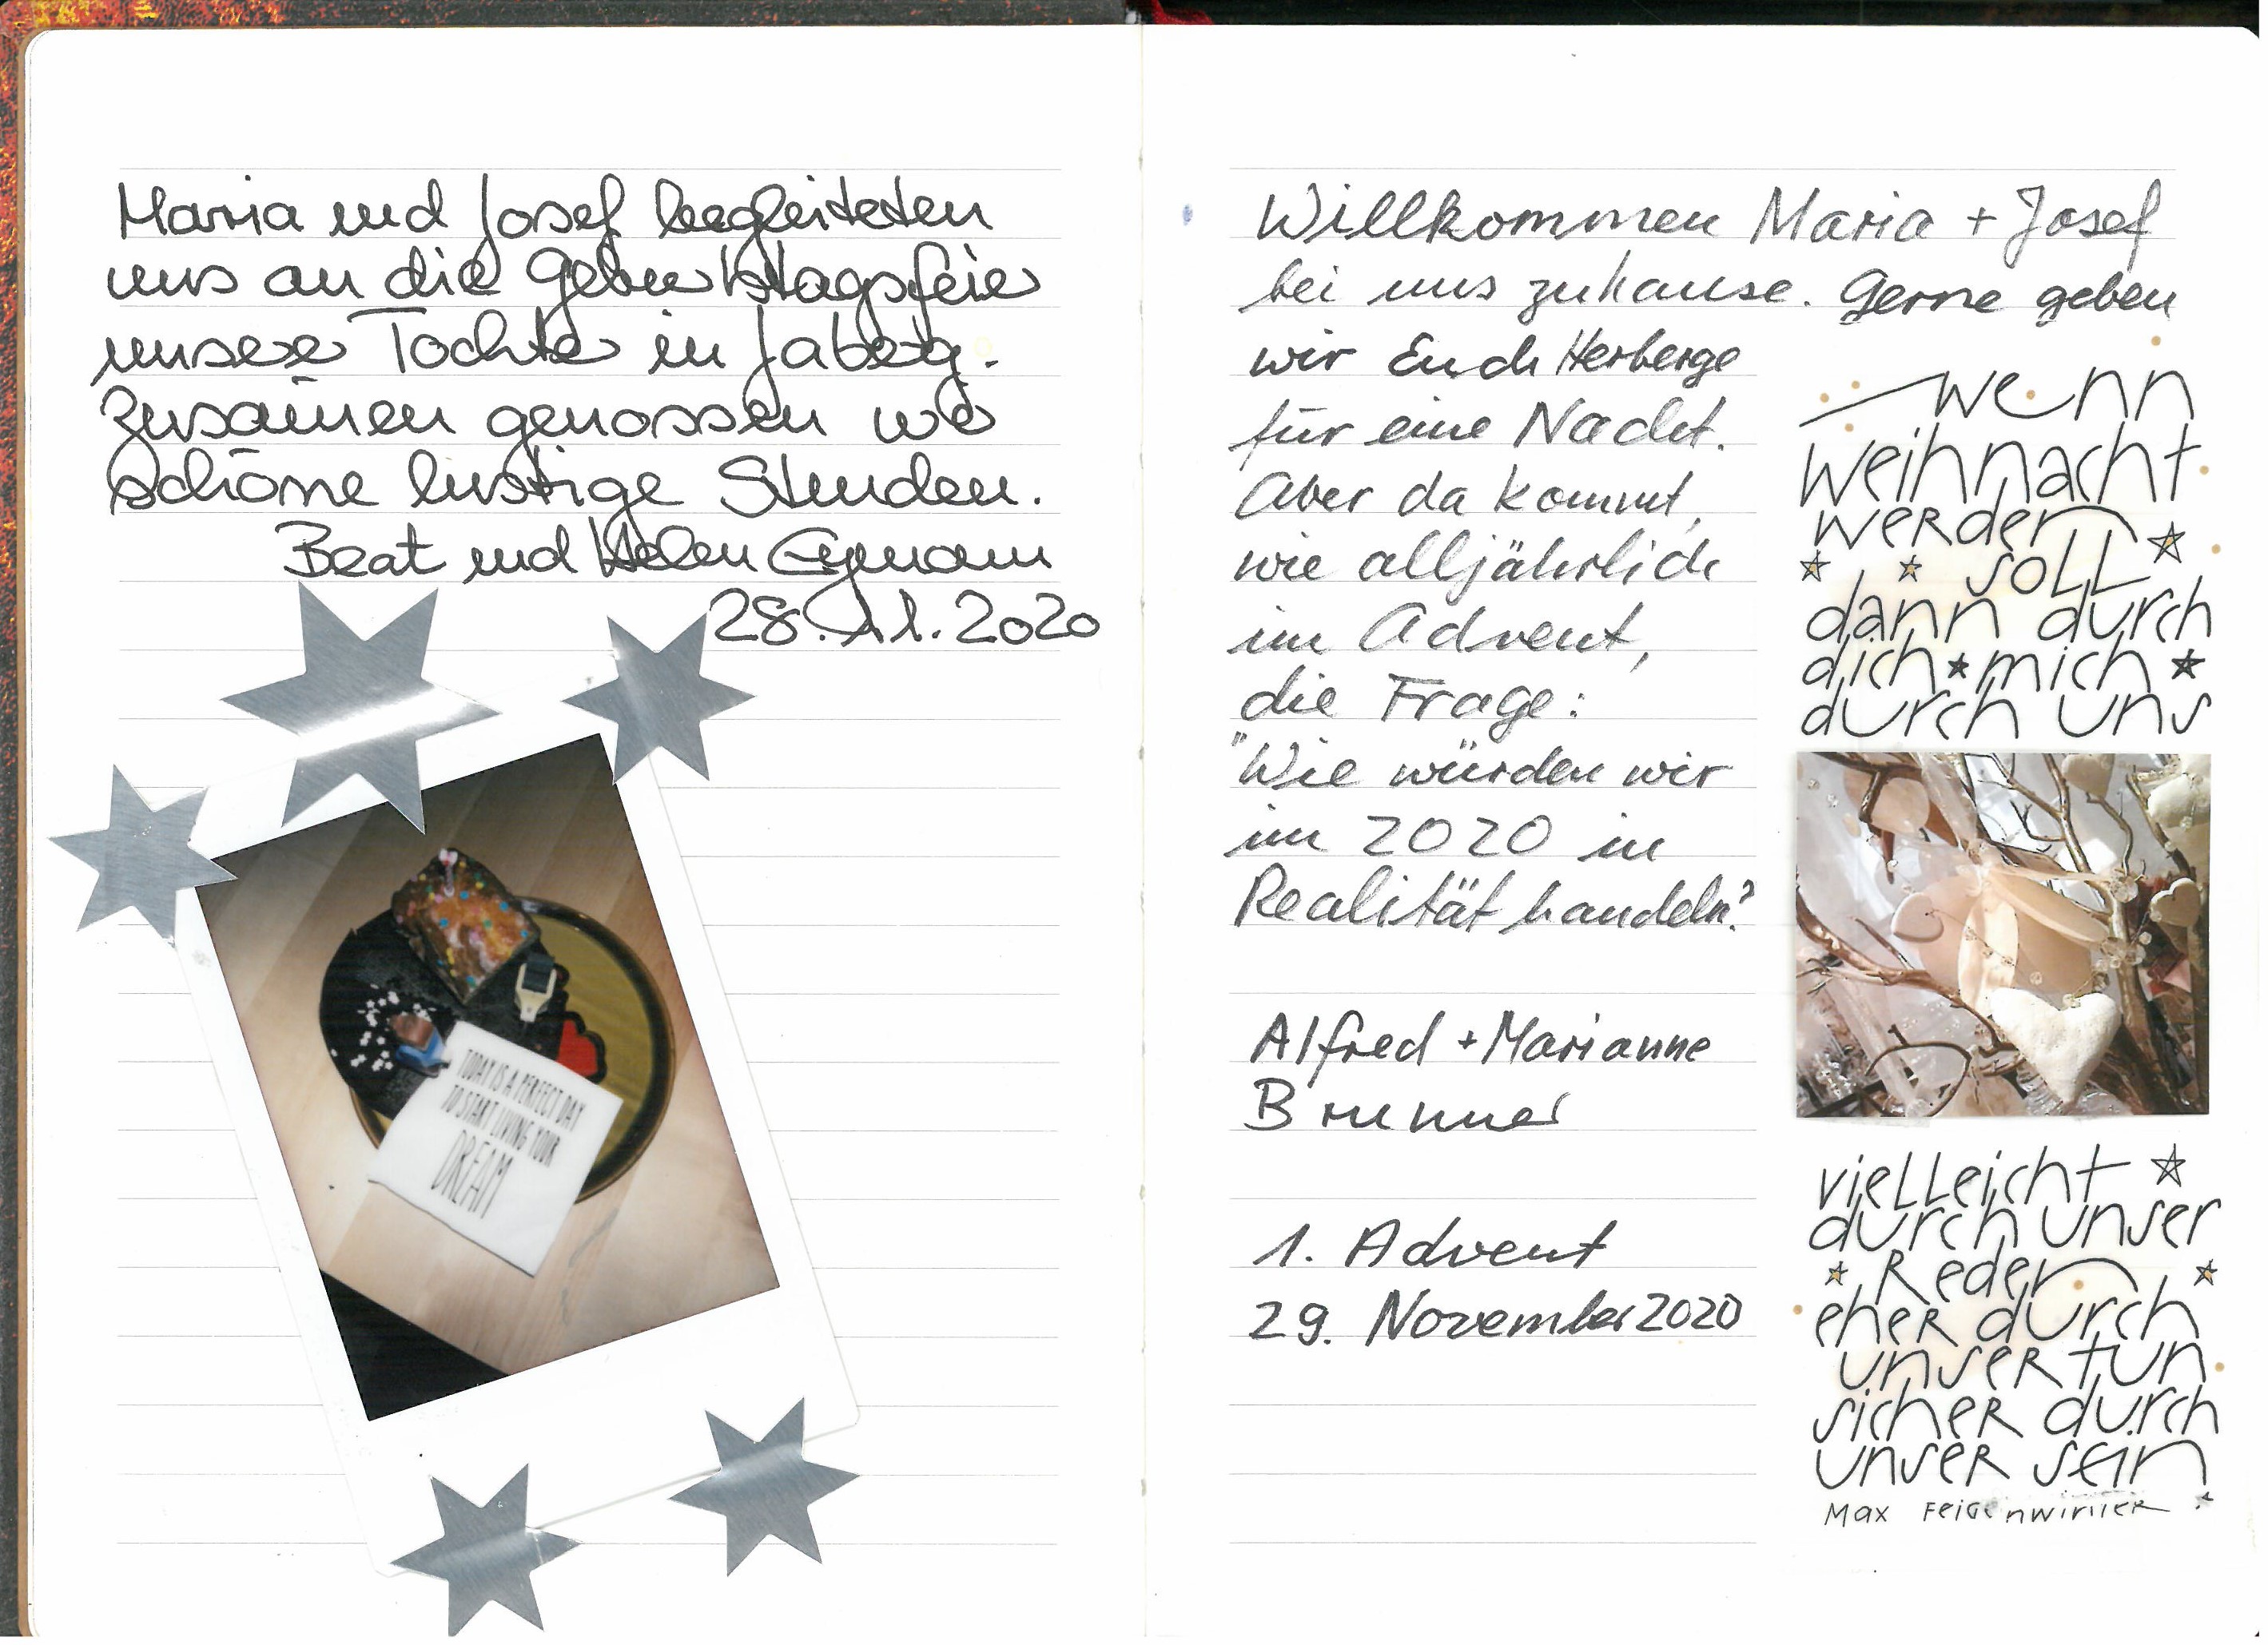 Maria und Josef begleiteten
uns an die Geburtstagsfeier
unserer Tochter in Jaberg.
Zusam̄en genossen wir
schöne lustige Stunden.
Beat und Helen Gymann
28.11.2020
TODAY IS A PERFECT DAY
TO START LIVING YOUR
DREAM
Willkommen Maria + Josef
bei uns zuhause. Gerne geben
wir Euch Herberge
für eine Nacht.
Aber da kommt,
wie alljährlich
im Advent,
die Frage:
"Wie würden wir
im 2020 in
Realität handeln?
Alfred + Marianne
Brunner
1. Advent
29. November 2020
wenn
weihnacht
werden
soll
dann durch
dich mich
durch uns
vielleicht
durch unser
Reden
eher durch
unser tun
sicher durch
unser sein
Max Feigenwinter